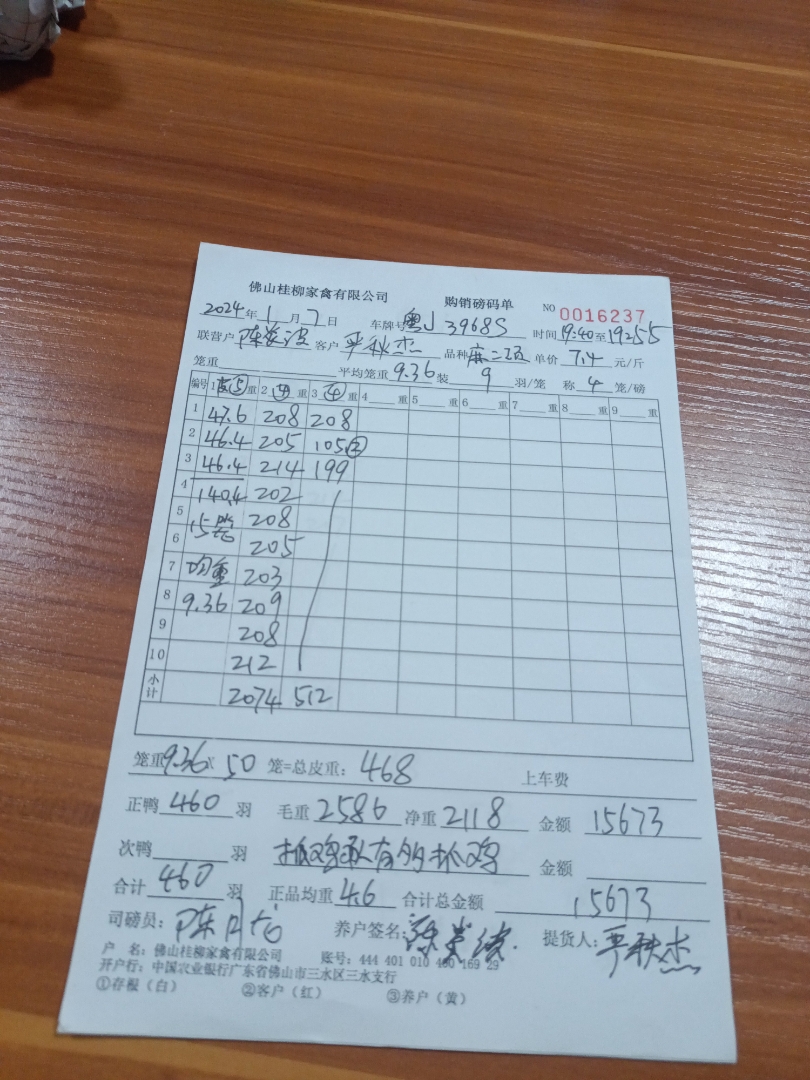 佛山桂柳家禽有限公司 购销磅码单 NO 0016237
2024年 1 月 7 日 车牌号 粤J 3968S 时间 19:40 至 19:55
联营户 客户 严秋杰 品种 麻二 单价 7.4 元/斤
笼重 平均笼重 9.36 装 9 羽/笼 称 4 笼/磅
编号 1 ⑤ 重 2 ④ 重 3 ④ 重 4 重 5 重 6 重 7 重 8 重 9 重
1 47.6 208 208
2 46.4 205 105 ②
3 46.4 214 199
4 140.4 202
5 15 208
6 205
7 均重 203
8 9.36 209
9 208
10 212
小计 2074 512
笼重 9.36 × 50 笼=总皮重: 468 上车费
正鸭 460 羽 毛重 2586 净重 2118 金额 15673
次鸭 羽 金额
合计 460 羽 正品均重 4.6 合计总金额 15673
司磅员: 陈 养户签名: 提货人: 严秋杰
户 名: 佛山桂柳家禽有限公司 账号: 444 401 010 400 169 29
开户行: 中国农业银行广东省佛山市三水区三水支行
①存根（白） ②客户（红） ③养户（黄）